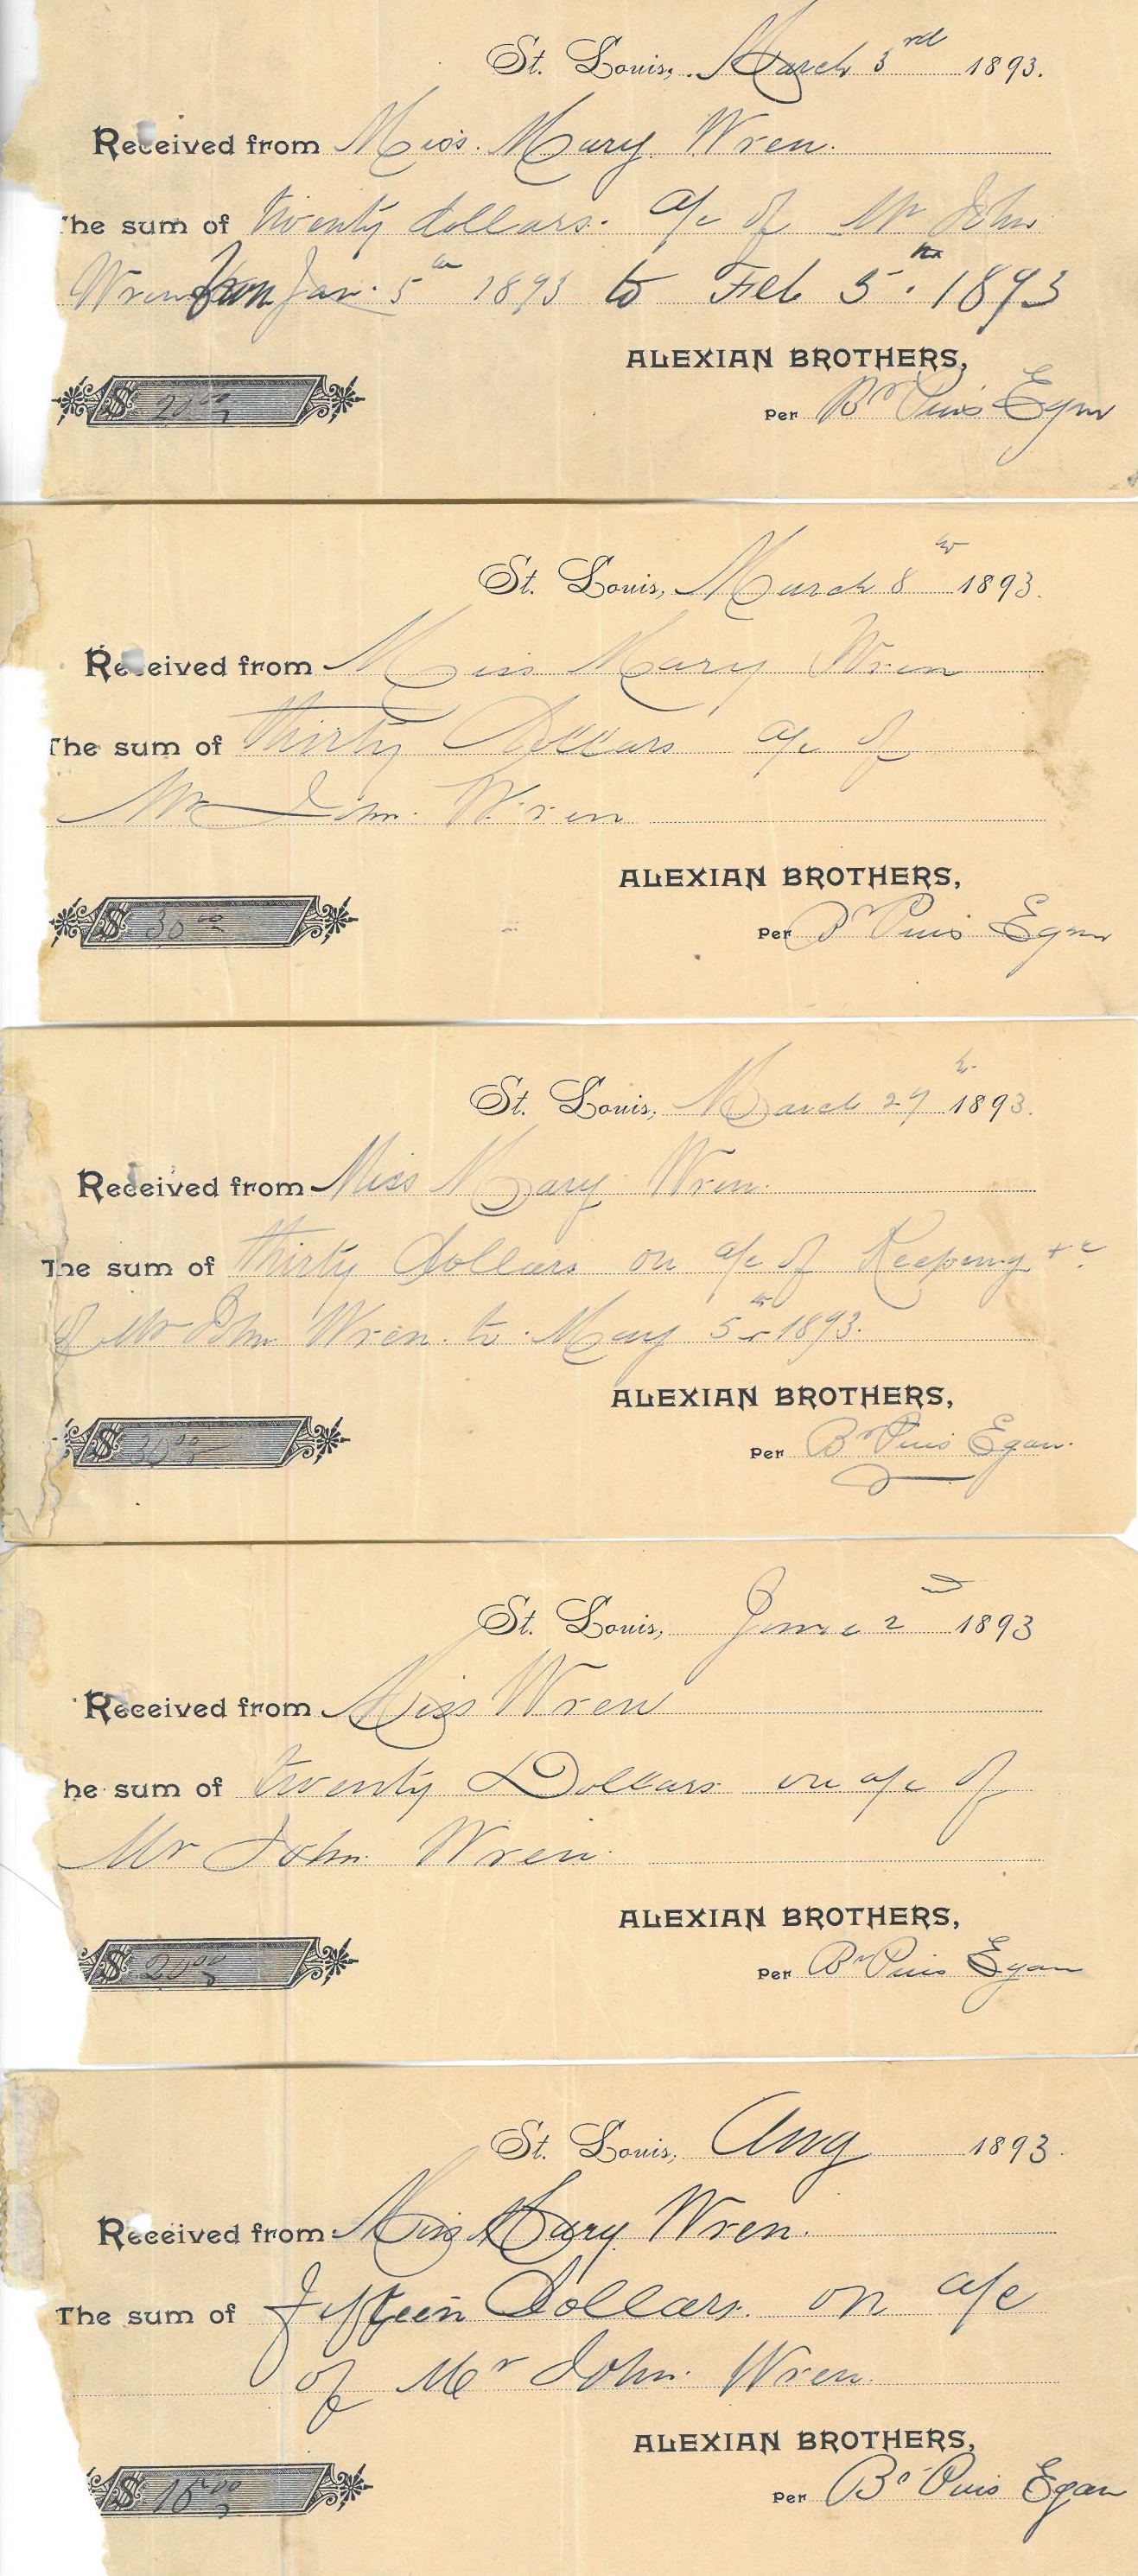 St. Louis, March 3rd 1893.
Received from Miss. Mary Wren.
The sum of twenty dollars. a/c of Mr John
Wren from Jan. 5th 1893 to Feb 5th. 1893
ALEXIAN BROTHERS,
$ 20.00
Per Br Pius Egan
St. Louis, March 8th 1893.
Received from Miss Mary Wren
The sum of thirty Dollars a/c of
Mr John. Wren
ALEXIAN BROTHERS,
$ 30.00
Per Br Pius Egan
St. Louis, March 29th 1893.
Received from Miss Mary Wren.
The sum of thirty Dollars on a/c of Keeping +c
of Mr John Wren. to May 5th 1893.
ALEXIAN BROTHERS,
$ 30.00
Per Br Pius Egan.
St. Louis, June 2d 1893
Received from Miss Wren
he sum of twenty Dollars on a/c of
Mr John Wren.
ALEXIAN BROTHERS,
$ 20.00
Per Br Pius Egan
St. Louis, Aug 1893.
Received from Miss Mary Wren.
The sum of fifteen Dollars. on a/c
of Mr John. Wren.
ALEXIAN BROTHERS,
$ 15.00
Per Br Pius Egan